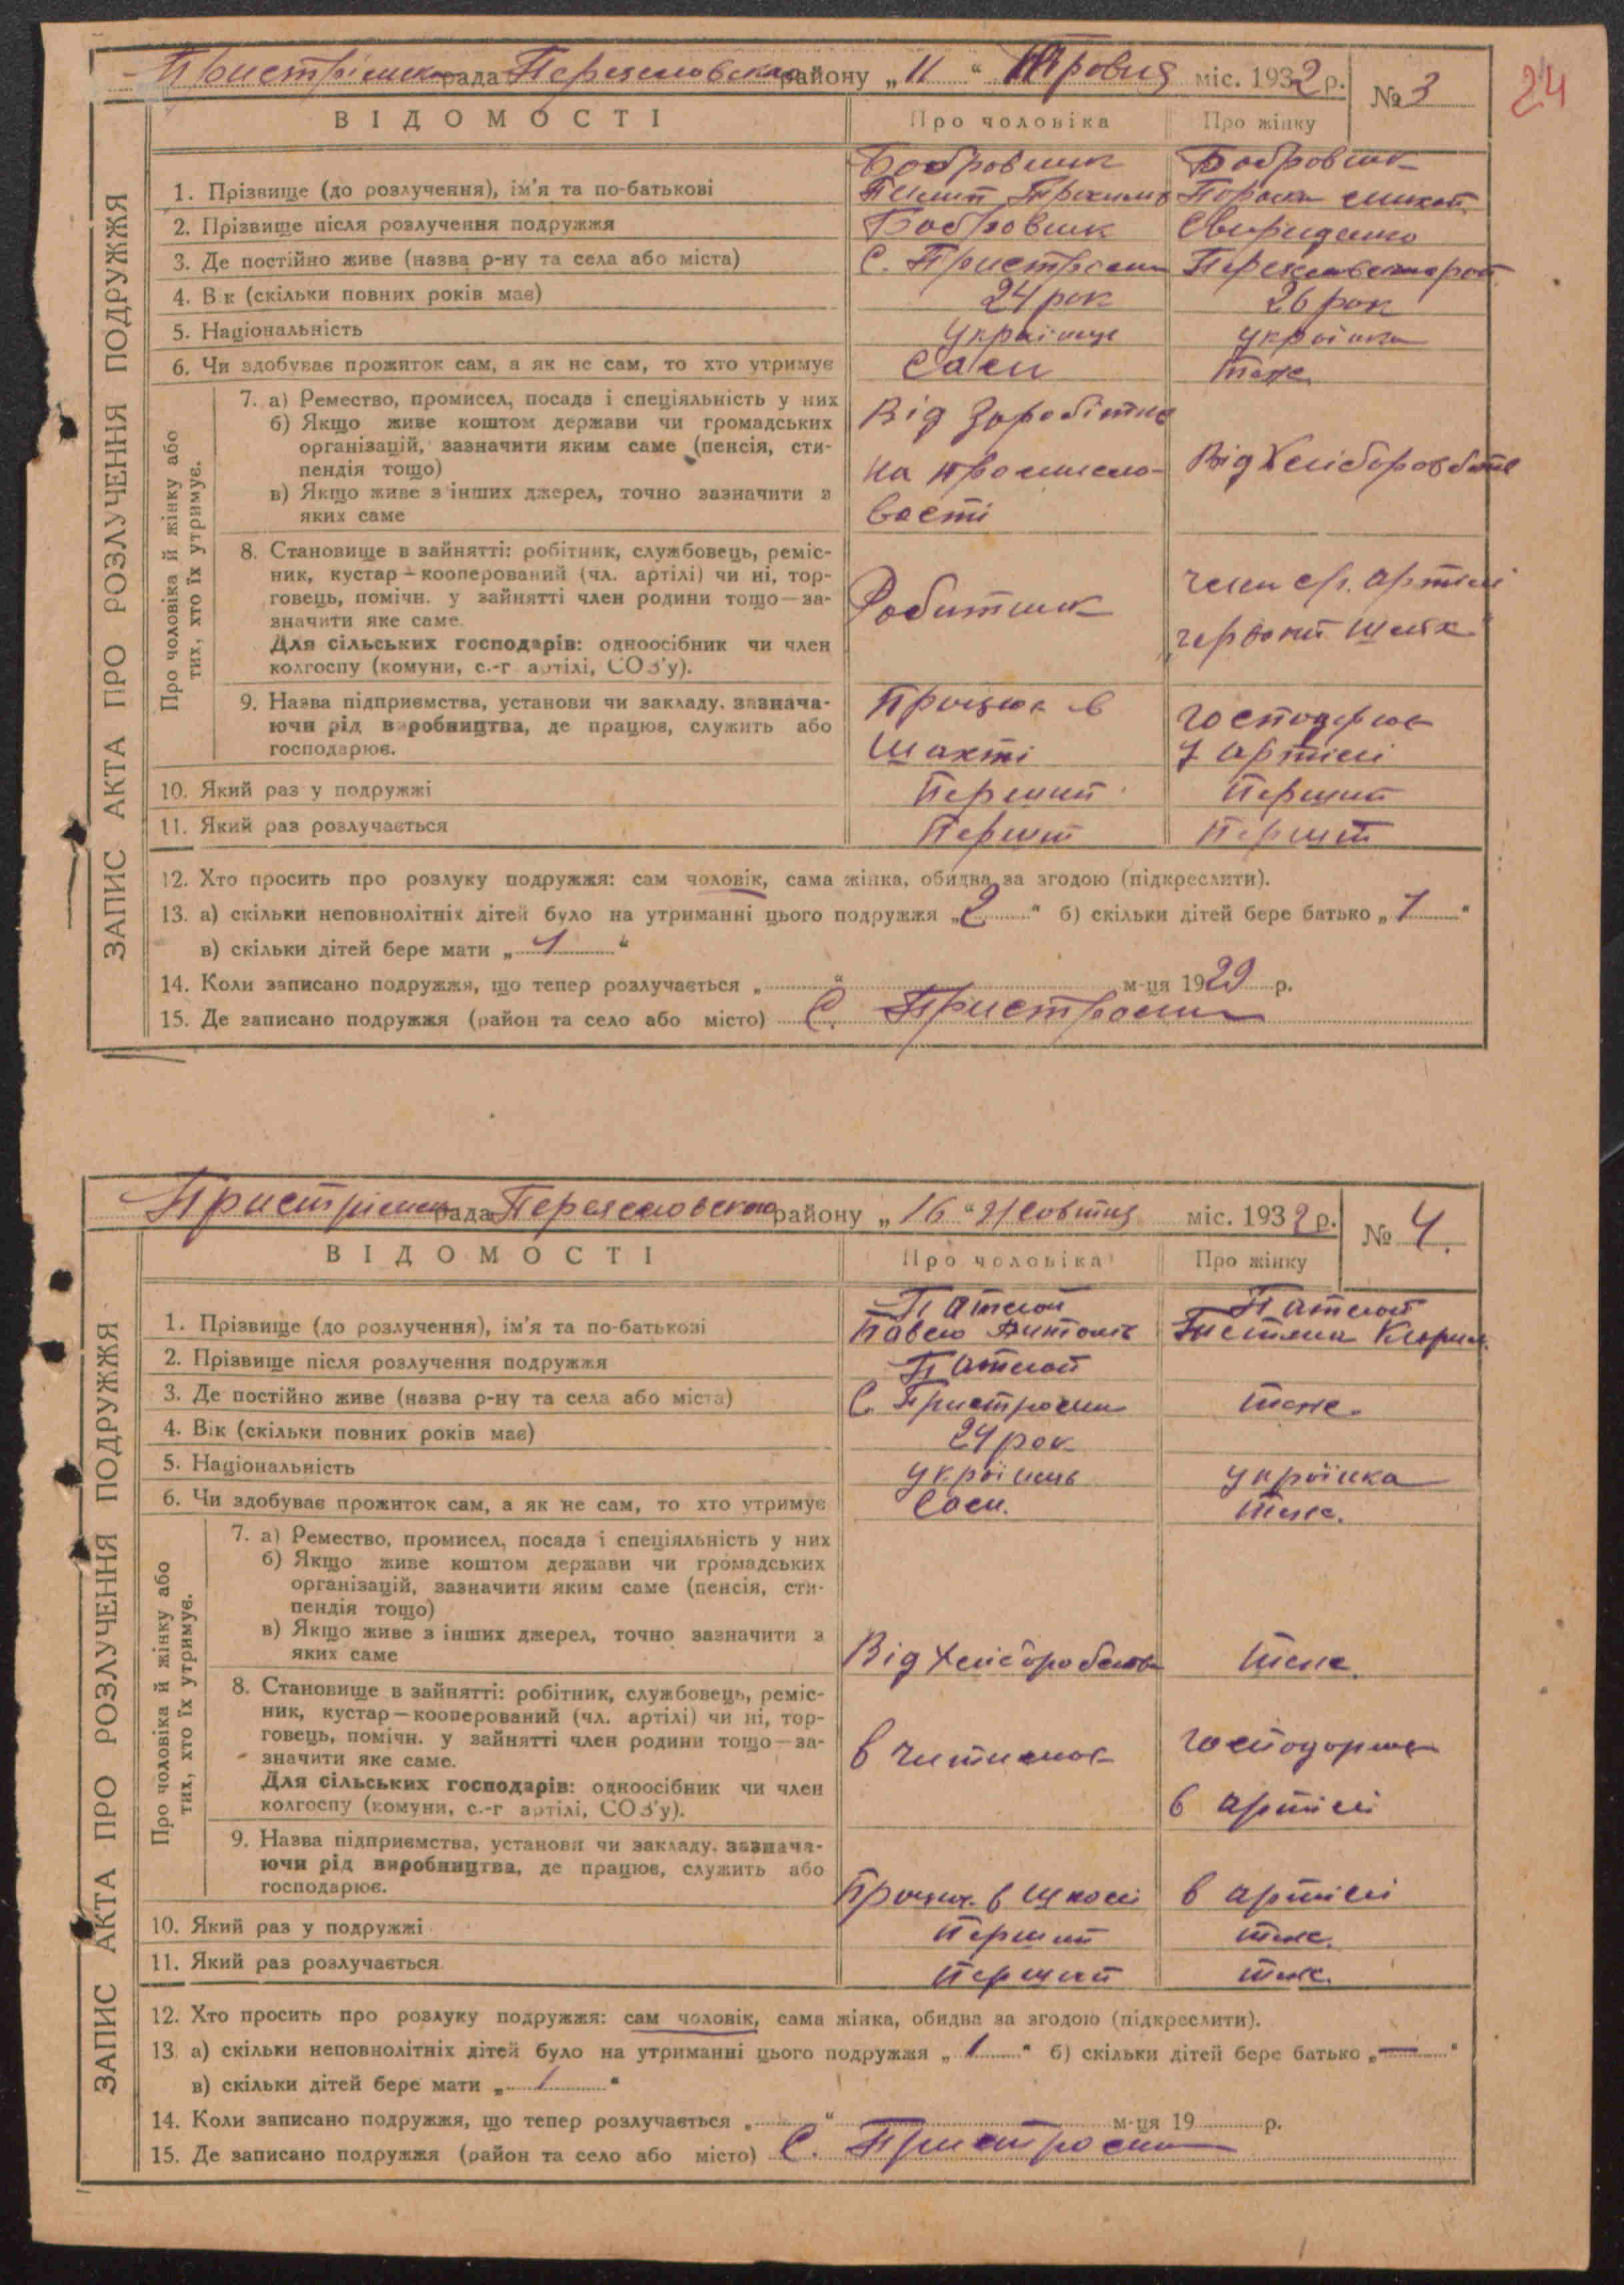 24
Пристрімска рада Переяславського району „11“ Травня міс. 1932 р. № 3
ВІДОМОСТІ Про чоловіка Про жінку
ЗАПИС АКТА ПРО РОЗЛУЧЕННЯ ПОДРУЖЖЯ
Бобровник Бобровник
1. Прізвище (до розлучення), ім'я та по-батькові Пилип
2. Прізвище після розлучення подружжя Бобровник Свириденко
3. Де постійно живе (назва р-ну та села або міста) С. Пристроми
4. Вік (скільки повних років має) 24 рок 26 рок
5. Національність українец українка
6. Чи здобуває прожиток сам, а як не сам, то хто утримує Сам теж.
Про чоловіка й жінку або
тих, хто їх утримує.
7. а) Ремество, промисел, посада і спеціяльність у них
б) Якщо живе коштом держави чи громадських Від заробітка
організацій, зазначити яким саме (пенсія, сти-
пендія тощо) на промисло- Від Хліборобства
в) Якщо живе з інших джерел, точно зазначити з
яких саме вості
8. Становище в зайнятті: робітник, службовець, реміс-
ник, кустар—кооперований (чл. артілі) чи ні, тор- член с/г. артілі
говець, помічн. у зайнятті член родини тощо—за- Робитник
значити яке саме. червоний шлях
Для сільських господарів: одноосібник чи член
колгоспу (комуни, с.-г артілі, СОЗ'у).
9. Назва підприємства, установи чи закладу, зазнача- Працює в господарює
ючи рід виробництва, де працює, служить або
господарює. шахті у артілі
10. Який раз у подружжі Перший Перший
11. Який раз розлучається Перший Перший
12. Хто просить про розлуку подружжя: сам чоловік, сама жінка, обидва за згодою (підкреслити).
13. а) скільки неповнолітніх дітей було на утриманні цього подружжя „2“ б) скільки дітей бере батько „1“
в) скільки дітей бере мати „1“
14. Коли записано подружжя, що тепер розлучається „ “ м-ця 1929 р.
15. Де записано подружжя (район та село або місто) С. Пристроми
Пристрімска рада Переяславского району „16“ Жовтня міс. 1932 р. № 4.
ВІДОМОСТІ Про чоловіка Про жінку
ЗАПИС АКТА ПРО РОЗЛУЧЕННЯ ПОДРУЖЖЯ
1. Прізвище (до розлучення), ім'я та по-батькові Павло Антонів
2. Прізвище після розлучення подружжя
3. Де постійно живе (назва р-ну та села або міста) С. Пристроми теж.
4. Вік (скільки повних років має) 24 рок
5. Національність українець українка
6. Чи здобуває прожиток сам, а як не сам, то хто утримує Сам. теж.
Про чоловіка й жінку або
тих, хто їх утримує.
7. а) Ремество, промисел, посада і спеціяльність у них
б) Якщо живе коштом держави чи громадських
організацій, зазначити яким саме (пенсія, сти-
пендія тощо)
в) Якщо живе з інших джерел, точно зазначити з
яких саме Від Хліборобства теж.
8. Становище в зайнятті: робітник, службовець, реміс-
ник, кустар—кооперований (чл. артілі) чи ні, тор-
говець, помічн. у зайнятті член родини тощо—за- господарює
значити яке саме.
Для сільських господарів: одноосібник чи член
колгоспу (комуни, с.-г артілі, СОЗ'у). в артілі
9. Назва підприємства, установи чи закладу, зазнача-
ючи рід виробництва, де працює, служить або
господарює. Працює в школі в артілі
10. Який раз у подружжі Перший теж.
11. Який раз розлучається Перший теж.
12. Хто просить про розлуку подружжя: сам чоловік, сама жінка, обидва за згодою (підкреслити).
13. а) скільки неповнолітніх дітей було на утриманні цього подружжя „1“ б) скільки дітей бере батько „—“
в) скільки дітей бере мати „1“
14. Коли записано подружжя, що тепер розлучається „ “ м-ця 19 р.
15. Де записано подружжя (район та село або місто) С. Пристроми